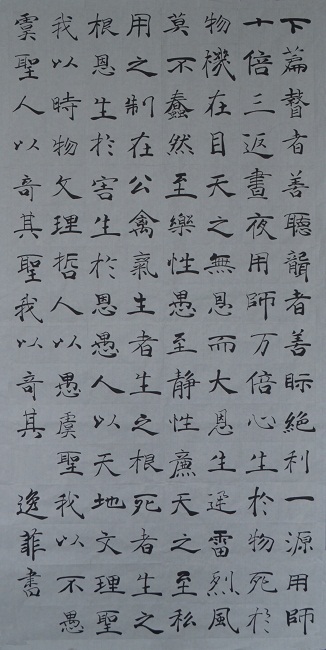 下篇瞽者善聽聾者善眎絕利一源用師
十倍三返晝夜用師万倍心生於物死於
物機在目天之無恩而大恩生迅雷烈風
莫不蠢然至樂性愚至静性廉天之至私
用之制在公禽氣生者生之根死者生之
根恩生於害生於恩愚人以天地文理聖
我以時物文理哲人以愚虞聖我以不愚
虞聖人以奇其聖我以奇其 逸菲書